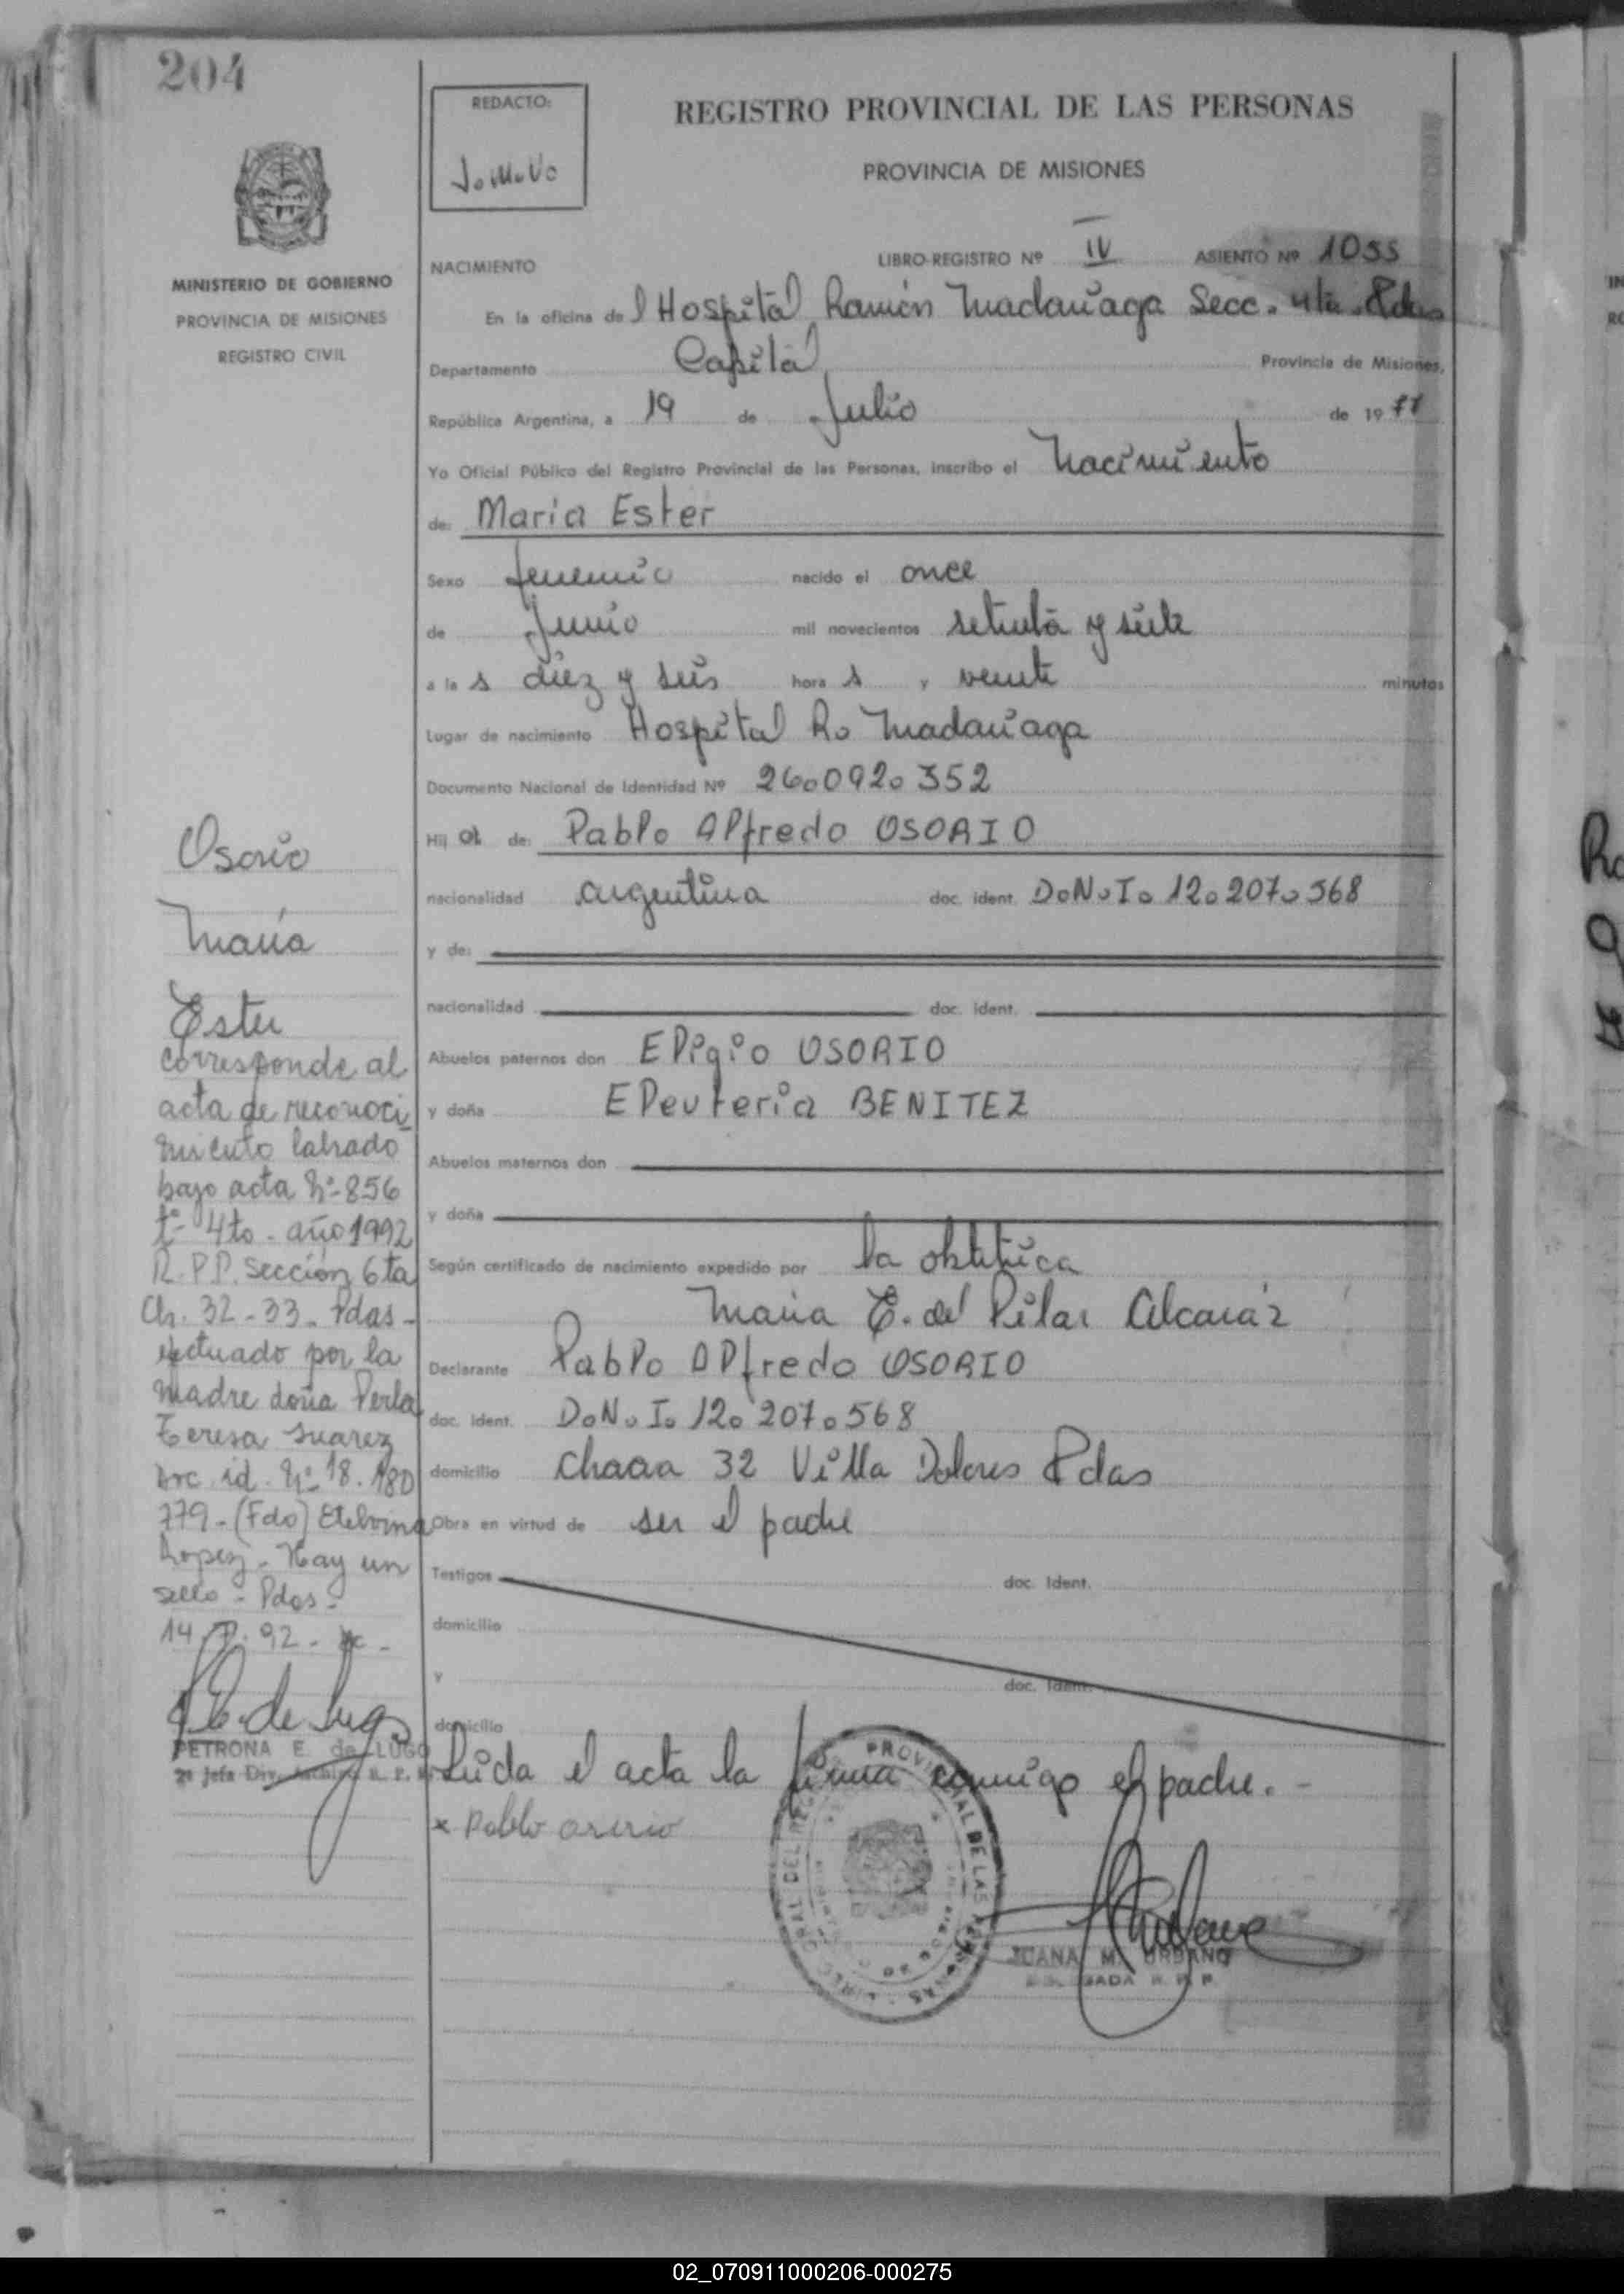 204
REDACTO:
J.M.U.
REGISTRO PROVINCIAL DE LAS PERSONAS
PROVINCIA DE MISIONES
MINISTERIO DE GOBIERNO
PROVINCIA DE MISIONES
REGISTRO CIVIL
NACIMIENTO LIBRO-REGISTRO Nº IV ASIENTO Nº 1055
En la oficina del Hospital Ramón Madariaga Secc. 4ta. Pdas
Departamento Capital Provincia de Misiones,
República Argentina, a 19 de Julio de 1977
Yo Oficial Público del Registro Provincial de las Personas, inscribo el Nacimiento
de: Maria Ester
Sexo femenino nacido el once
de Junio mil novecientos setenta y siete
a las diez y seis horas y veinte minutos
Lugar de nacimiento Hospital R. Madariaga
Documento Nacional de Identidad Nº 26.092.352
Hija de: Pablo Alfredo OSORIO
nacionalidad argentina doc. ident. D.N.I. 12.207.568
y de:
nacionalidad doc. ident.
Abuelos paternos don Eligio OSORIO
y doña Eleuteria BENITEZ
Abuelos maternos don
y doña
Según certificado de nacimiento expedido por la obstetrica
Maria E. del Pilar Alcaráz
Declarante Pablo Alfredo OSORIO
doc. ident. D.N.I. 12.207.568
domicilio Chacra 32 Villa Dolores Pdas
Obra en virtud de ser el padre
Testigos doc. Ident.
domicilio
y doc. Ident.
domicilio
Leida el acta la firma conmigo el padre. -
x Pablo osorio
JUANA M. URBANO
DELEGADA R. P. P.
Osorio
Maria
Ester
corresponde al
acta de reconoci
miento labrado
bajo acta Nº-856
tº- 4to - año 1992
R.P.P. Sección 6ta
Ch. 32-33- Pdas-
efectuado por la
madre doña Perla
Teresa Suarez
Doc. id. Nº 18.180
779-(Fdo) Etelvina
Lopez- Hay un
sello - Pdas-
PETRONA E. de LUGO
2º Jefa Div. Archivo R. P. P.
02_070911000206-000275